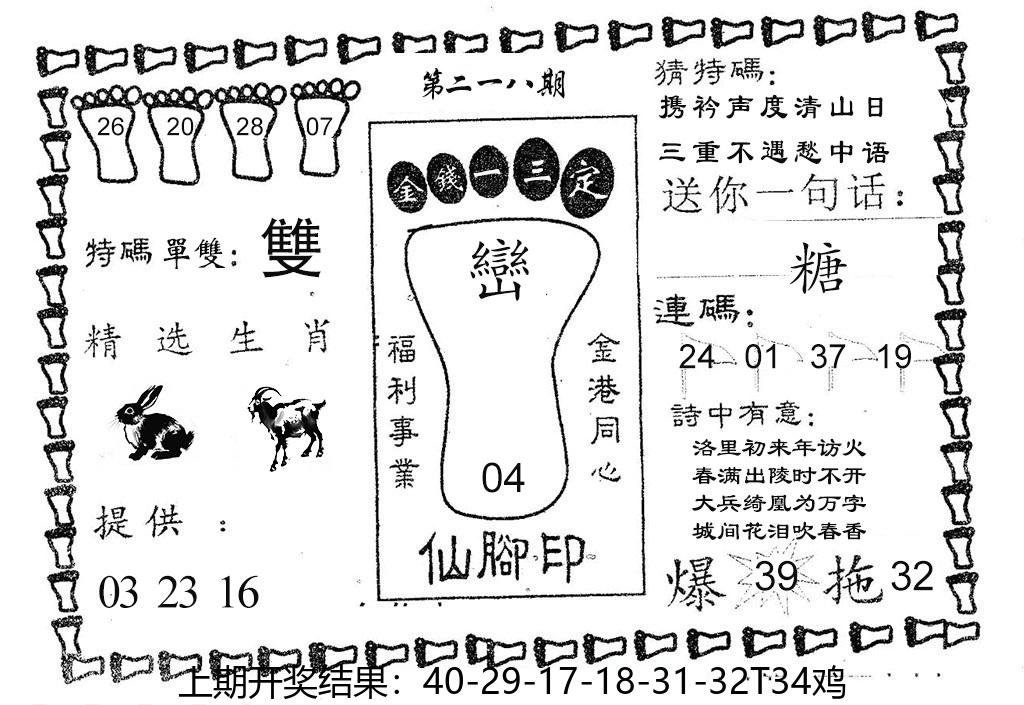 第二一八期
26 20 28 07
特碼單雙：雙
精选生肖
提供：
03 23 16
金錢一三定
巒
福利事業
金港同心
04
仙腳印
猜特碼：
携衿声度清山日
三重不遇愁中语
送你一句话：
糖
連碼：
24 01 37 19
詩中有意：
洛里初来年访火
春满出陵时不开
大兵绮凰为万字
城间花泪吹春香
爆 39 拖 32
上期开奖结果：40-29-17-18-31-32T34鸡